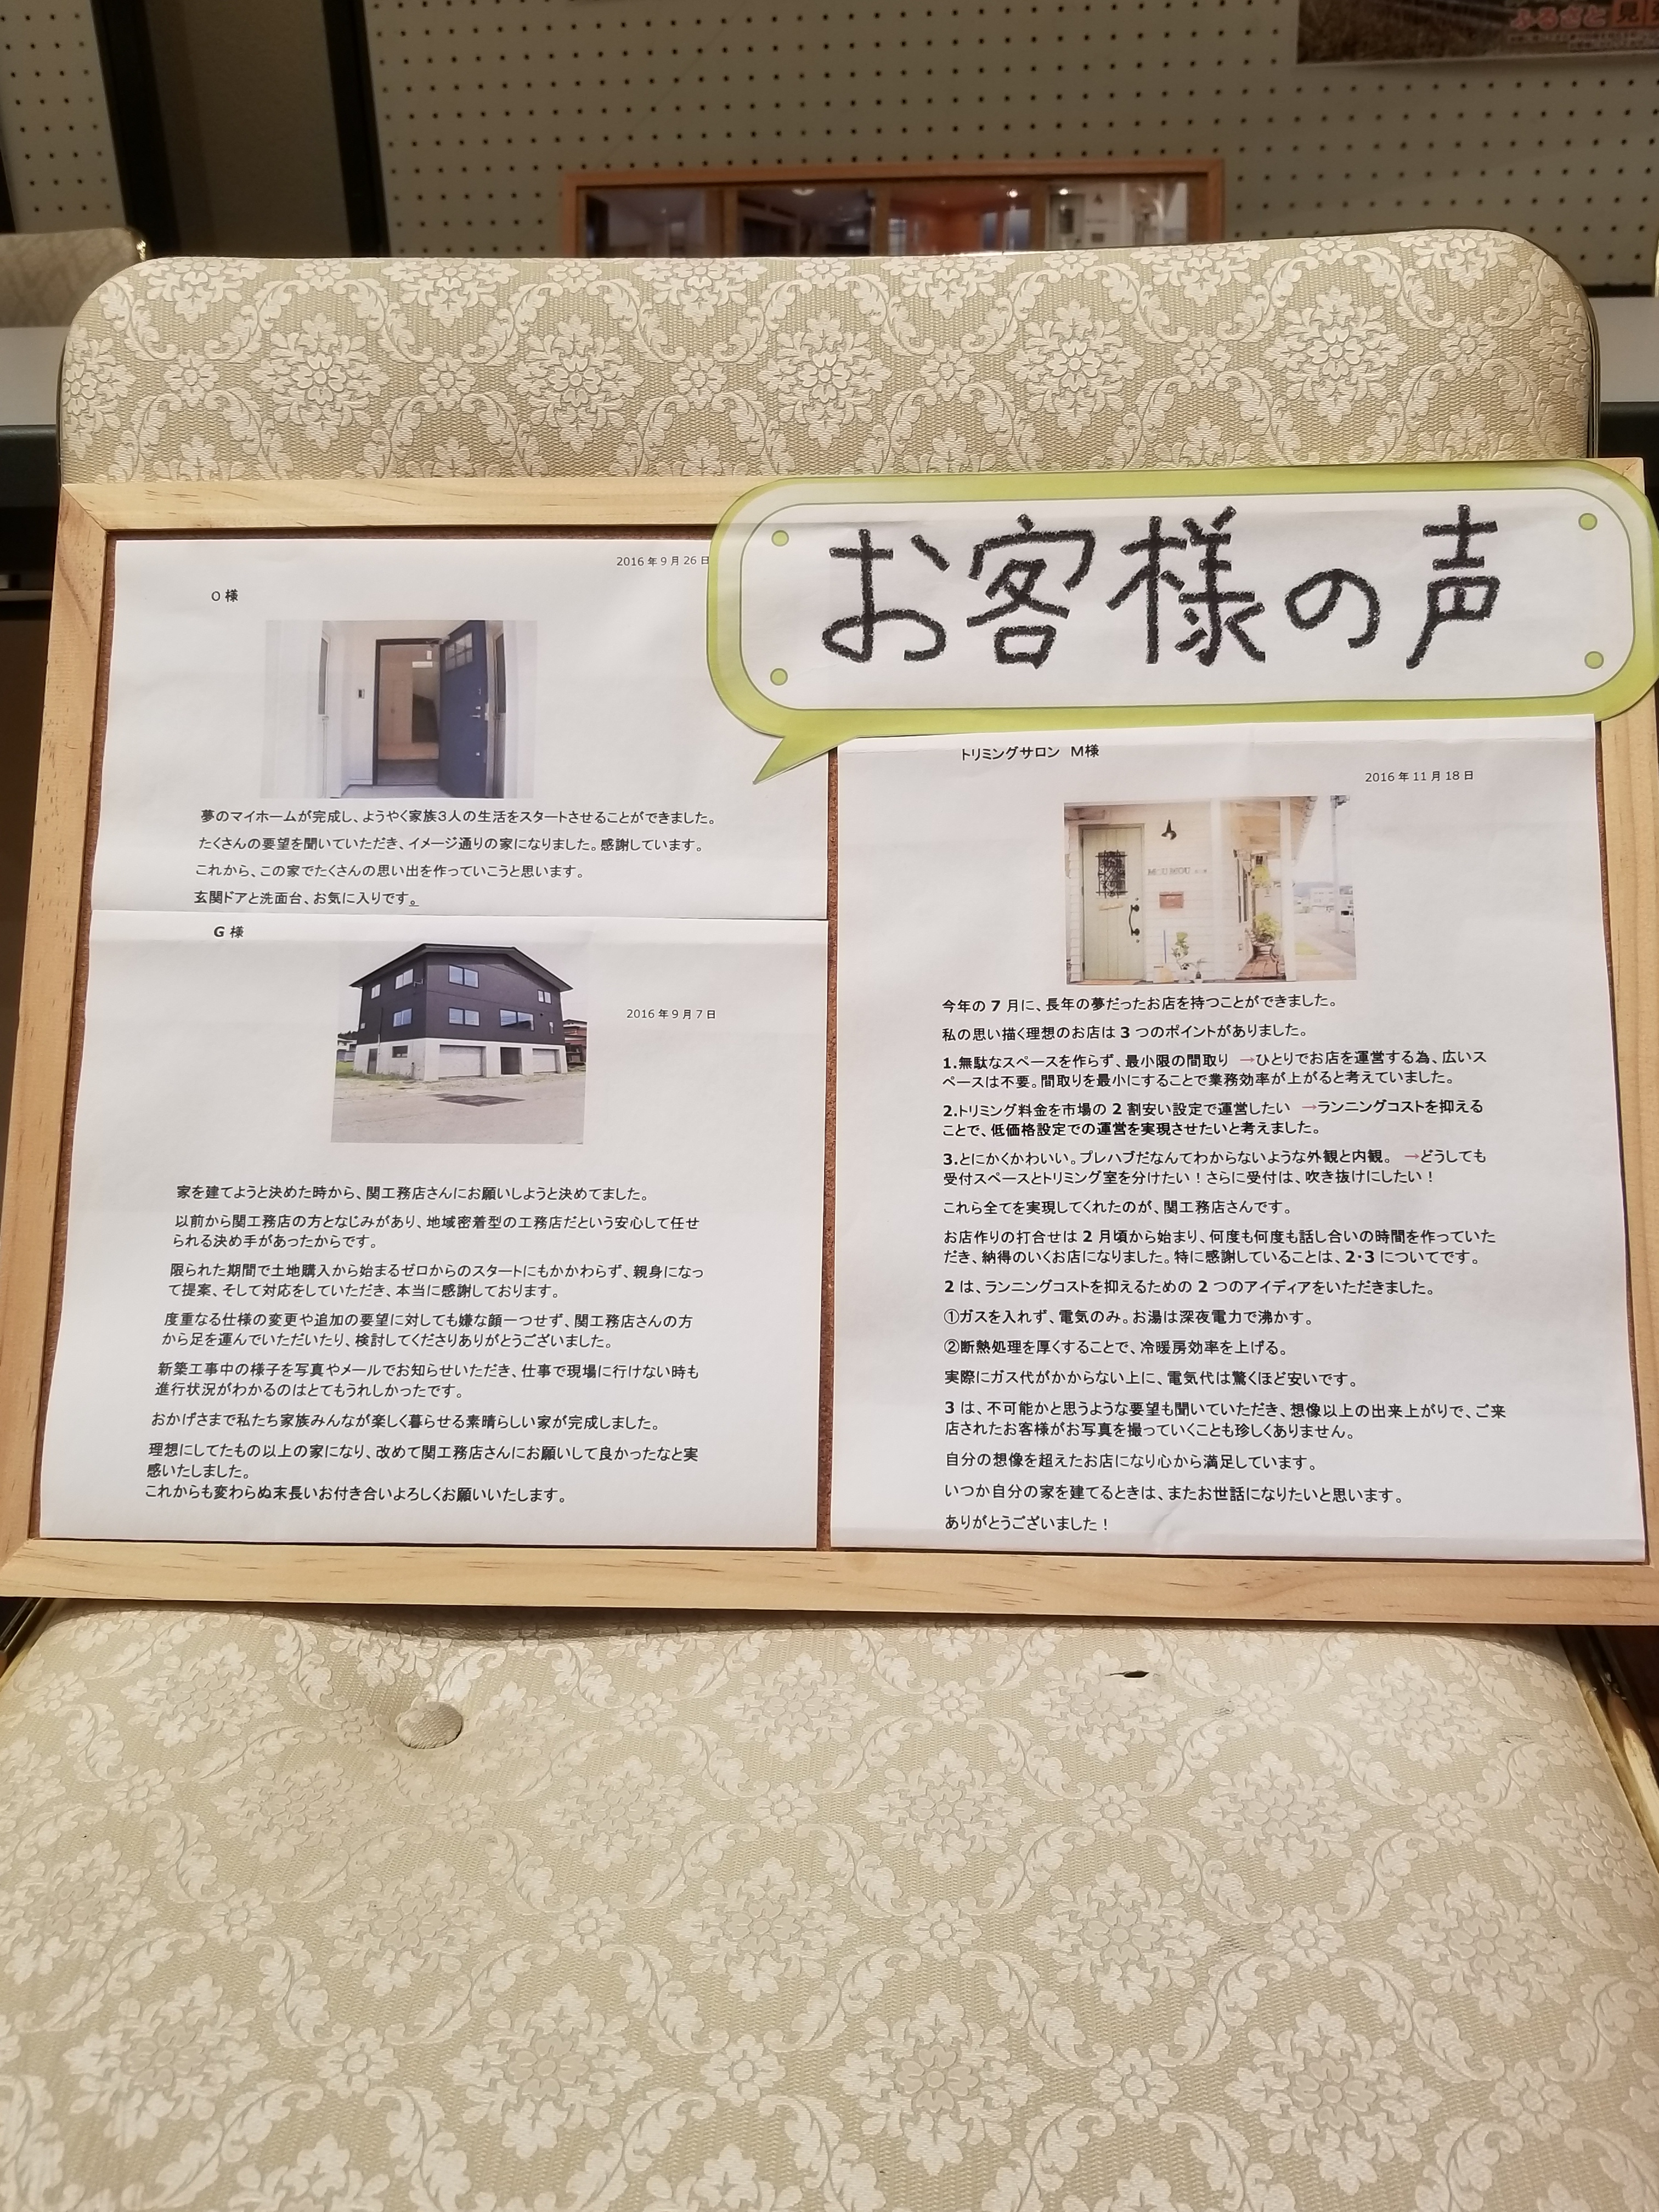 ふるさと
お客様の声
2016年9月26日
O様
夢のマイホームが完成し、ようやく家族3人の生活をスタートさせることができました。
たくさんの要望を聞いていただき、イメージ通りの家になりました。感謝しています。
これから、この家でたくさんの思い出を作っていこうと思います。
玄関ドアと洗面台、お気に入りです。
G様
2016年9月7日
家を建てようと決めた時から、関工務店さんにお願いしようと決めてました。
以前から関工務店の方となじみがあり、地域密着型の工務店だという安心して任せ
られる決め手があったからです。
限られた期間で土地購入から始まるゼロからのスタートにもかかわらず、親身になっ
て提案、そして対応をしていただき、本当に感謝しております。
度重なる仕様の変更や追加の要望に対しても嫌な顔一つせず、関工務店さんの方
から足を運んでいただいたり、検討してくださりありがとうございました。
新築工事中の様子を写真やメールでお知らせいただき、仕事で現場に行けない時も
進行状況がわかるのはとてもうれしかったです。
おかげさまで私たち家族みんなが楽しく暮らせる素晴らしい家が完成しました。
理想にしてたもの以上の家になり、改めて関工務店さんにお願いして良かったなと実
感いたしました。
これからも変わらぬ末長いお付き合いよろしくお願いいたします。
トリミングサロン M様
2016年11月18日
MOUMOU
今年の7月に、長年の夢だったお店を持つことができました。
私の思い描く理想のお店は3つのポイントがありました。
1.無駄なスペースを作らず、最小限の間取り →ひとりでお店を運営する為、広いス
ペースは不要。間取りを最小にすることで業務効率が上がると考えていました。
2.トリミング料金を市場の2割安い設定で運営したい →ランニングコストを抑える
ことで、低価格設定での運営を実現させたいと考えました。
3.とにかくかわいい。プレハブだなんてわからないような外観と内観。 →どうしても
受付スペースとトリミング室を分けたい！さらに受付は、吹き抜けにしたい！
これら全てを実現してくれたのが、関工務店さんです。
お店作りの打合せは2月頃から始まり、何度も何度も話し合いの時間を作っていた
だき、納得のいくお店になりました。特に感謝していることは、2・3についてです。
2は、ランニングコストを抑えるための2つのアイディアをいただきました。
①ガスを入れず、電気のみ。お湯は深夜電力で沸かす。
②断熱処理を厚くすることで、冷暖房効率を上げる。
実際にガス代がかからない上に、電気代は驚くほど安いです。
3は、不可能かと思うような要望も聞いていただき、想像以上の出来上がりで、ご来
店されたお客様がお写真を撮っていくことも珍しくありません。
自分の想像を超えたお店になり心から満足しています。
いつか自分の家を建てるときは、またお世話になりたいと思います。
ありがとうございました！